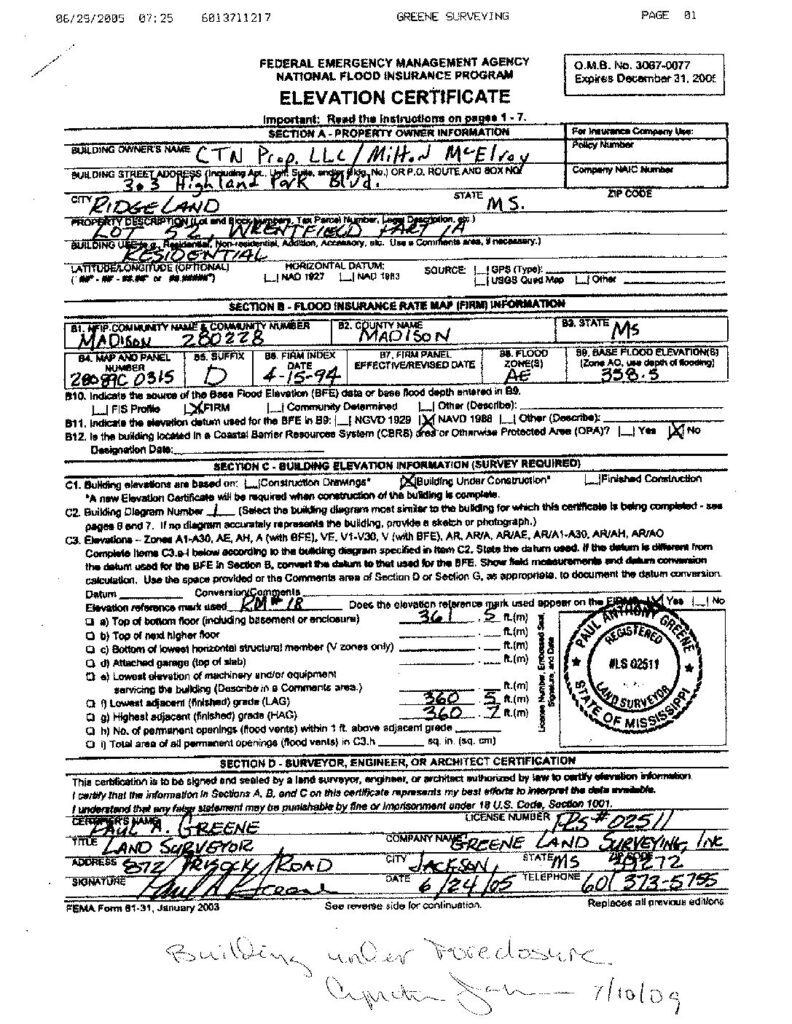 06/29/2005 07:25 6013711217 GREENE SURVEYING PAGE 01
FEDERAL EMERGENCY MANAGEMENT AGENCY
NATIONAL FLOOD INSURANCE PROGRAM
ELEVATION CERTIFICATE
O.M.B. No. 3067-0077
Expires December 31, 2005
Important: Read the instructions on pages 1 - 7.
SECTION A - PROPERTY OWNER INFORMATION
For Insurance Company Use:
BUILDING OWNER'S NAME CTN Prop. LLC/Milton McElroy
Policy Number
BUILDING STREET ADDRESS (Including Apt., Unit, Suite, and/or Bldg. No.) OR P.O. ROUTE AND BOX NO.
303 Highland Park Blvd.
Company NAIC Number
CITY RIDGELAND STATE MS. ZIP CODE
PROPERTY DESCRIPTION (Lot and Block Numbers, Tax Parcel Number, Legal Description, etc.)
LOT 52, WRENFIELD PART 1A
BUILDING USE (e.g., Residential, Non-residential, Addition, Accessory, etc. Use a Comments area, if necessary.)
RESIDENTIAL
LATITUDE/LONGITUDE (OPTIONAL) HORIZONTAL DATUM: SOURCE: |_| GPS (Type):
( ##° - ##' - ##.##" or ##.#####°) |_| NAD 1927 |_| NAD 1983 |_| USGS Quad Map |_| Other
SECTION B - FLOOD INSURANCE RATE MAP (FIRM) INFORMATION
B1. NFIP COMMUNITY NAME & COMMUNITY NUMBER
MADISON 280228
B2. COUNTY NAME
MADISON
B3. STATE
MS
B4. MAP AND PANEL NUMBER
28089C 0315
B5. SUFFIX
D
B6. FIRM INDEX DATE
4-15-94
B7. FIRM PANEL EFFECTIVE/REVISED DATE
B8. FLOOD ZONE(S)
AE
B9. BASE FLOOD ELEVATION(S) (Zone AO, use depth of flooding)
358.5
B10. Indicate the source of the Base Flood Elevation (BFE) data or base flood depth entered in B9.
|_| FIS Profile |X| FIRM |_| Community Determined |_| Other (Describe):
B11. Indicate the elevation datum used for the BFE in B9: |_| NGVD 1929 |X| NAVD 1988 |_| Other (Describe):
B12. Is the building located in a Coastal Barrier Resources System (CBRS) area or Otherwise Protected Area (OPA)? |_| Yes |X| No
Designation Date:
SECTION C - BUILDING ELEVATION INFORMATION (SURVEY REQUIRED)
C1. Building elevations are based on: |_| Construction Drawings* |X| Building Under Construction* |_| Finished Construction
*A new Elevation Certificate will be required when construction of the building is complete.
C2. Building Diagram Number 1 (Select the building diagram most similar to the building for which this certificate is being completed - see
pages 6 and 7. If no diagram accurately represents the building, provide a sketch or photograph.)
C3. Elevations – Zones A1-A30, AE, AH, A (with BFE), VE, V1-V30, V (with BFE), AR, AR/A, AR/AE, AR/A1-A30, AR/AH, AR/AO
Complete Items C3.a-i below according to the building diagram specified in Item C2. State the datum used. If the datum is different from
the datum used for the BFE in Section B, convert the datum to that used for the BFE. Show field measurements and datum conversion
calculation. Use the space provided or the Comments area of Section D or Section G, as appropriate, to document the datum conversion.
Datum Conversion/Comments
Elevation reference mark used RM# 18 Does the elevation reference mark used appear on the FIRM? |X| Yes |_| No
a) Top of bottom floor (including basement or enclosure) 361 . 5 ft.(m)
b) Top of next higher floor . ft.(m)
c) Bottom of lowest horizontal structural member (V zones only) . ft.(m)
d) Attached garage (top of slab) . ft.(m)
e) Lowest elevation of machinery and/or equipment
servicing the building (Describe in a Comments area.) . ft.(m)
f) Lowest adjacent (finished) grade (LAG) 360 . 5 ft.(m)
g) Highest adjacent (finished) grade (HAG) 360 . 7 ft.(m)
h) No. of permanent openings (flood vents) within 1 ft. above adjacent grade
i) Total area of all permanent openings (flood vents) in C3.h sq. in. (sq. cm)
License Number, Embossed Seal, Signature, and Date
PAUL ANTHONY GREENE
REGISTERED
#LS 02511
LAND SURVEYOR
STATE OF MISSISSIPPI
SECTION D - SURVEYOR, ENGINEER, OR ARCHITECT CERTIFICATION
This certification is to be signed and sealed by a land surveyor, engineer, or architect authorized by law to certify elevation information.
I certify that the information in Sections A, B, and C on this certificate represents my best efforts to interpret the data available.
I understand that any false statement may be punishable by fine or imprisonment under 18 U.S. Code, Section 1001.
CERTIFIER'S NAME PAUL A. GREENE LICENSE NUMBER PLS #02511
TITLE LAND SURVEYOR COMPANY NAME GREENE LAND SURVEYING, INC
ADDRESS 872 TRISOCK ROAD CITY JACKSON, STATE MS 39272
SIGNATURE Paul A Greene DATE 6/24/05 TELEPHONE 601 373-5755
FEMA Form 81-31, January 2003 See reverse side for continuation. Replaces all previous editions
Building under Foreclosure.
7/10/09